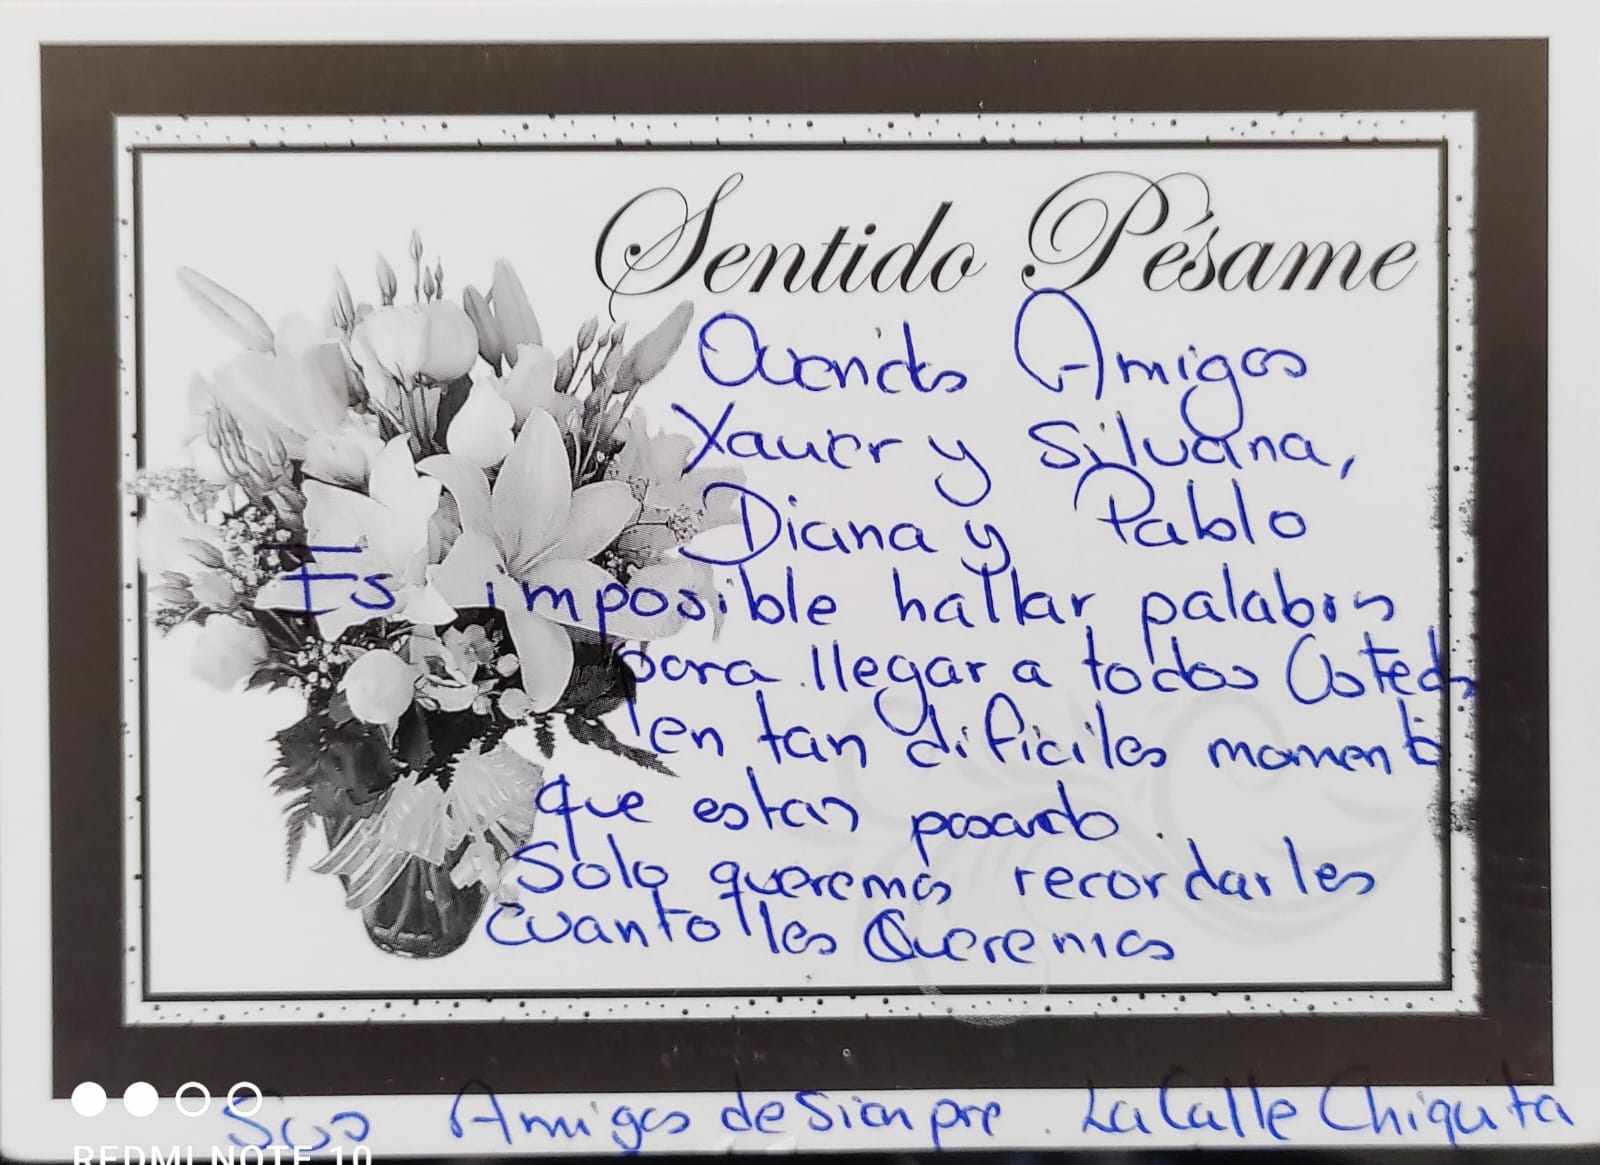 Sentido Pésame
Queridos Amigos
Xavier y Silvana,
Diana y Pablo
Es imposible hallar palabras
para llegar a todos Ustedes
en tan difíciles momentos
que estan pasando.
Solo queremos recordarles
cuanto les Queremos
Sus Amigos de Siempre. La Calle Chiquita
REDMI NOTE 10